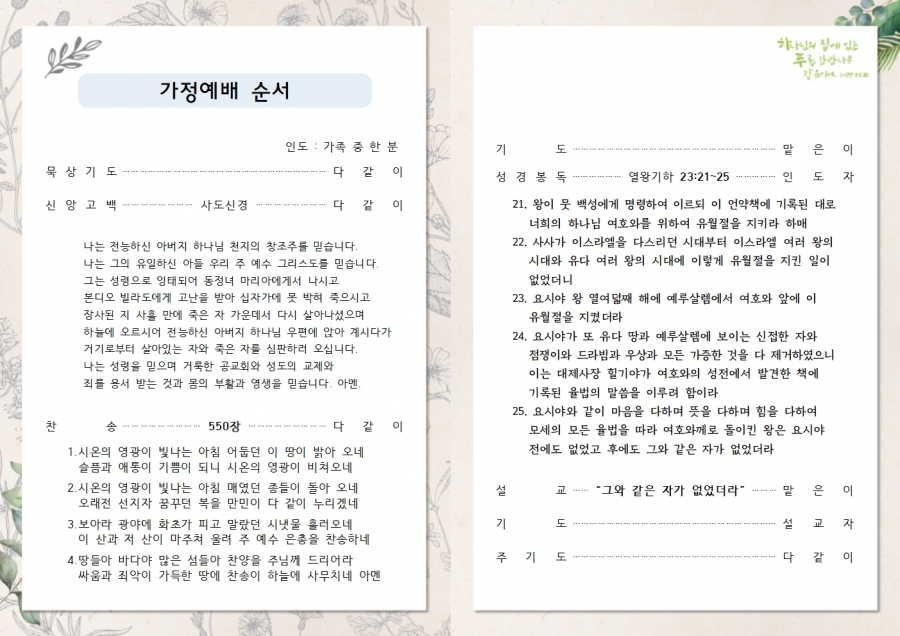 가정예배 순서
인도 : 가족 중 한 분
묵 상 기 도 ················ 다 같 이
신 앙 고 백 ················ 사도신경 ················ 다 같 이
나는 전능하신 아버지 하나님 천지의 창조주를 믿습니다.
나는 그의 유일하신 아들 우리 주 예수 그리스도를 믿습니다.
그는 성령으로 잉태되어 동정녀 마리아에게서 나시고
본디오 빌라도에게 고난을 받아 십자가에 못 박혀 죽으시고
장사된 지 사흘 만에 죽은 자 가운데서 다시 살아나셨으며
하늘에 오르시어 전능하신 아버지 하나님 우편에 앉아 계시다가
거기로부터 살아있는 자와 죽은 자를 심판하러 오십니다.
나는 성령을 믿으며 거룩한 공교회와 성도의 교제와
죄를 용서 받는 것과 몸의 부활과 영생을 믿습니다. 아멘.
찬 송 ················ 550장 ················ 다 같 이
1.시온의 영광이 빛나는 아침 어둡던 이 땅이 밝아 오네
슬픔과 애통이 기쁨이 되니 시온의 영광이 비쳐오네
2.시온의 영광이 빛나는 아침 매였던 종들이 돌아 오네
오래전 선지자 꿈꾸던 복을 만민이 다 같이 누리겠네
3.보아라 광야에 화초가 피고 말랐던 시냇물 흘러오네
이 산과 저 산이 마주쳐 울려 주 예수 은총을 찬송하네
4.땅들아 바다야 많은 섬들아 찬양을 주님께 드리어라
싸움과 죄악이 가득한 땅에 찬송이 하늘에 사무치네 아멘
하나님의 집에 있는
푸른 감람나무
같음이여 (시편 52:8)
기 도 ················ 맡 은 이
성 경 봉 독 ················ 열왕기하 23:21~25 ················ 인 도 자
21. 왕이 뭇 백성에게 명령하여 이르되 이 언약책에 기록된 대로
너희의 하나님 여호와를 위하여 유월절을 지키라 하매
22. 사사가 이스라엘을 다스리던 시대부터 이스라엘 여러 왕의
시대와 유다 여러 왕의 시대에 이렇게 유월절을 지킨 일이
없었더니
23. 요시야 왕 열여덟째 해에 예루살렘에서 여호와 앞에 이
유월절을 지켰더라
24. 요시야가 또 유다 땅과 예루살렘에 보이는 신접한 자와
점쟁이와 드라빔과 우상과 모든 가증한 것을 다 제거하였으니
이는 대제사장 힐기야가 여호와의 성전에서 발견한 책에
기록된 율법의 말씀을 이루려 함이라
25. 요시야와 같이 마음을 다하며 뜻을 다하며 힘을 다하여
모세의 모든 율법을 따라 여호와께로 돌이킨 왕은 요시야
전에도 없었고 후에도 그와 같은 자가 없었더라
설 교 ····· “그와 같은 자가 없었더라” ······ 맡 은 이
기 도 ················ 설 교 자
주 기 도 ················ 다 같 이